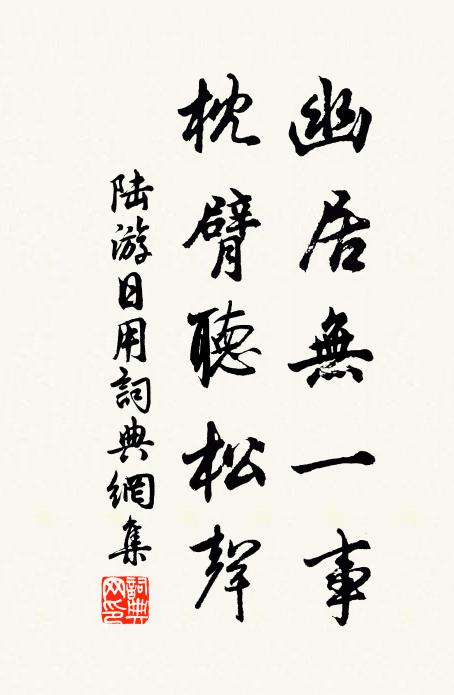 幽居無一事
枕臂聽松聲
陆游日用詞典網集
詞典网印